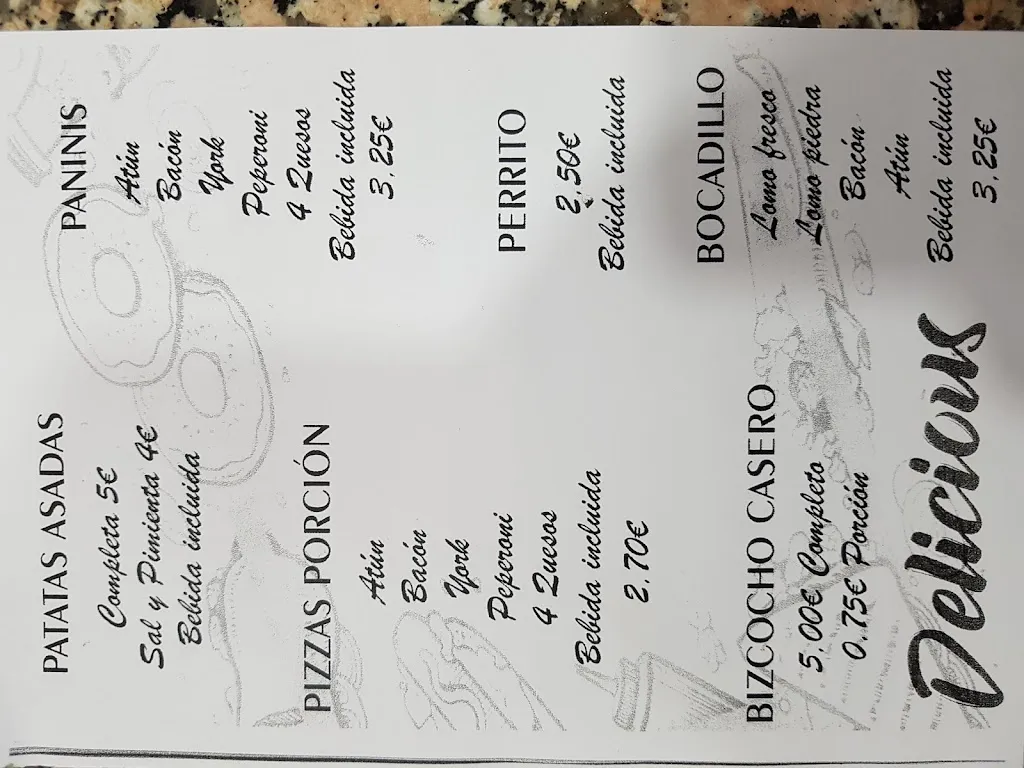 PATATAS ASADAS
Completa 5€
Sal y Pimienta 4€
Bebida incluida
PIZZAS PORCIÓN
Atún
Bacón
York
Peperoni
4 Quesos
Bebida incluida
2.70€
BIZCOCHO CASERO
5,00€ Completo
0.75€ Porción
Delicious
PANINIS
Atún
Bacón
York
Peperoni
4 Quesos
Bebida incluida
3,25€
PERRITO
2,50€
Bebida incluida
BOCADILLO
Lomo fresco
Lomo piedra
Bacón
Atún
Bebida incluida
3,25€